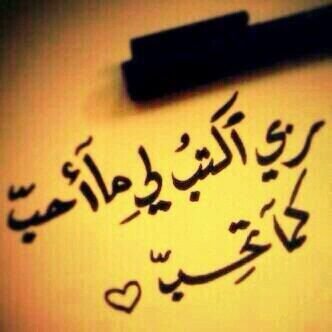 ربي أكتبُ لي مآ أحبّ
كمآ تحبّ ♡